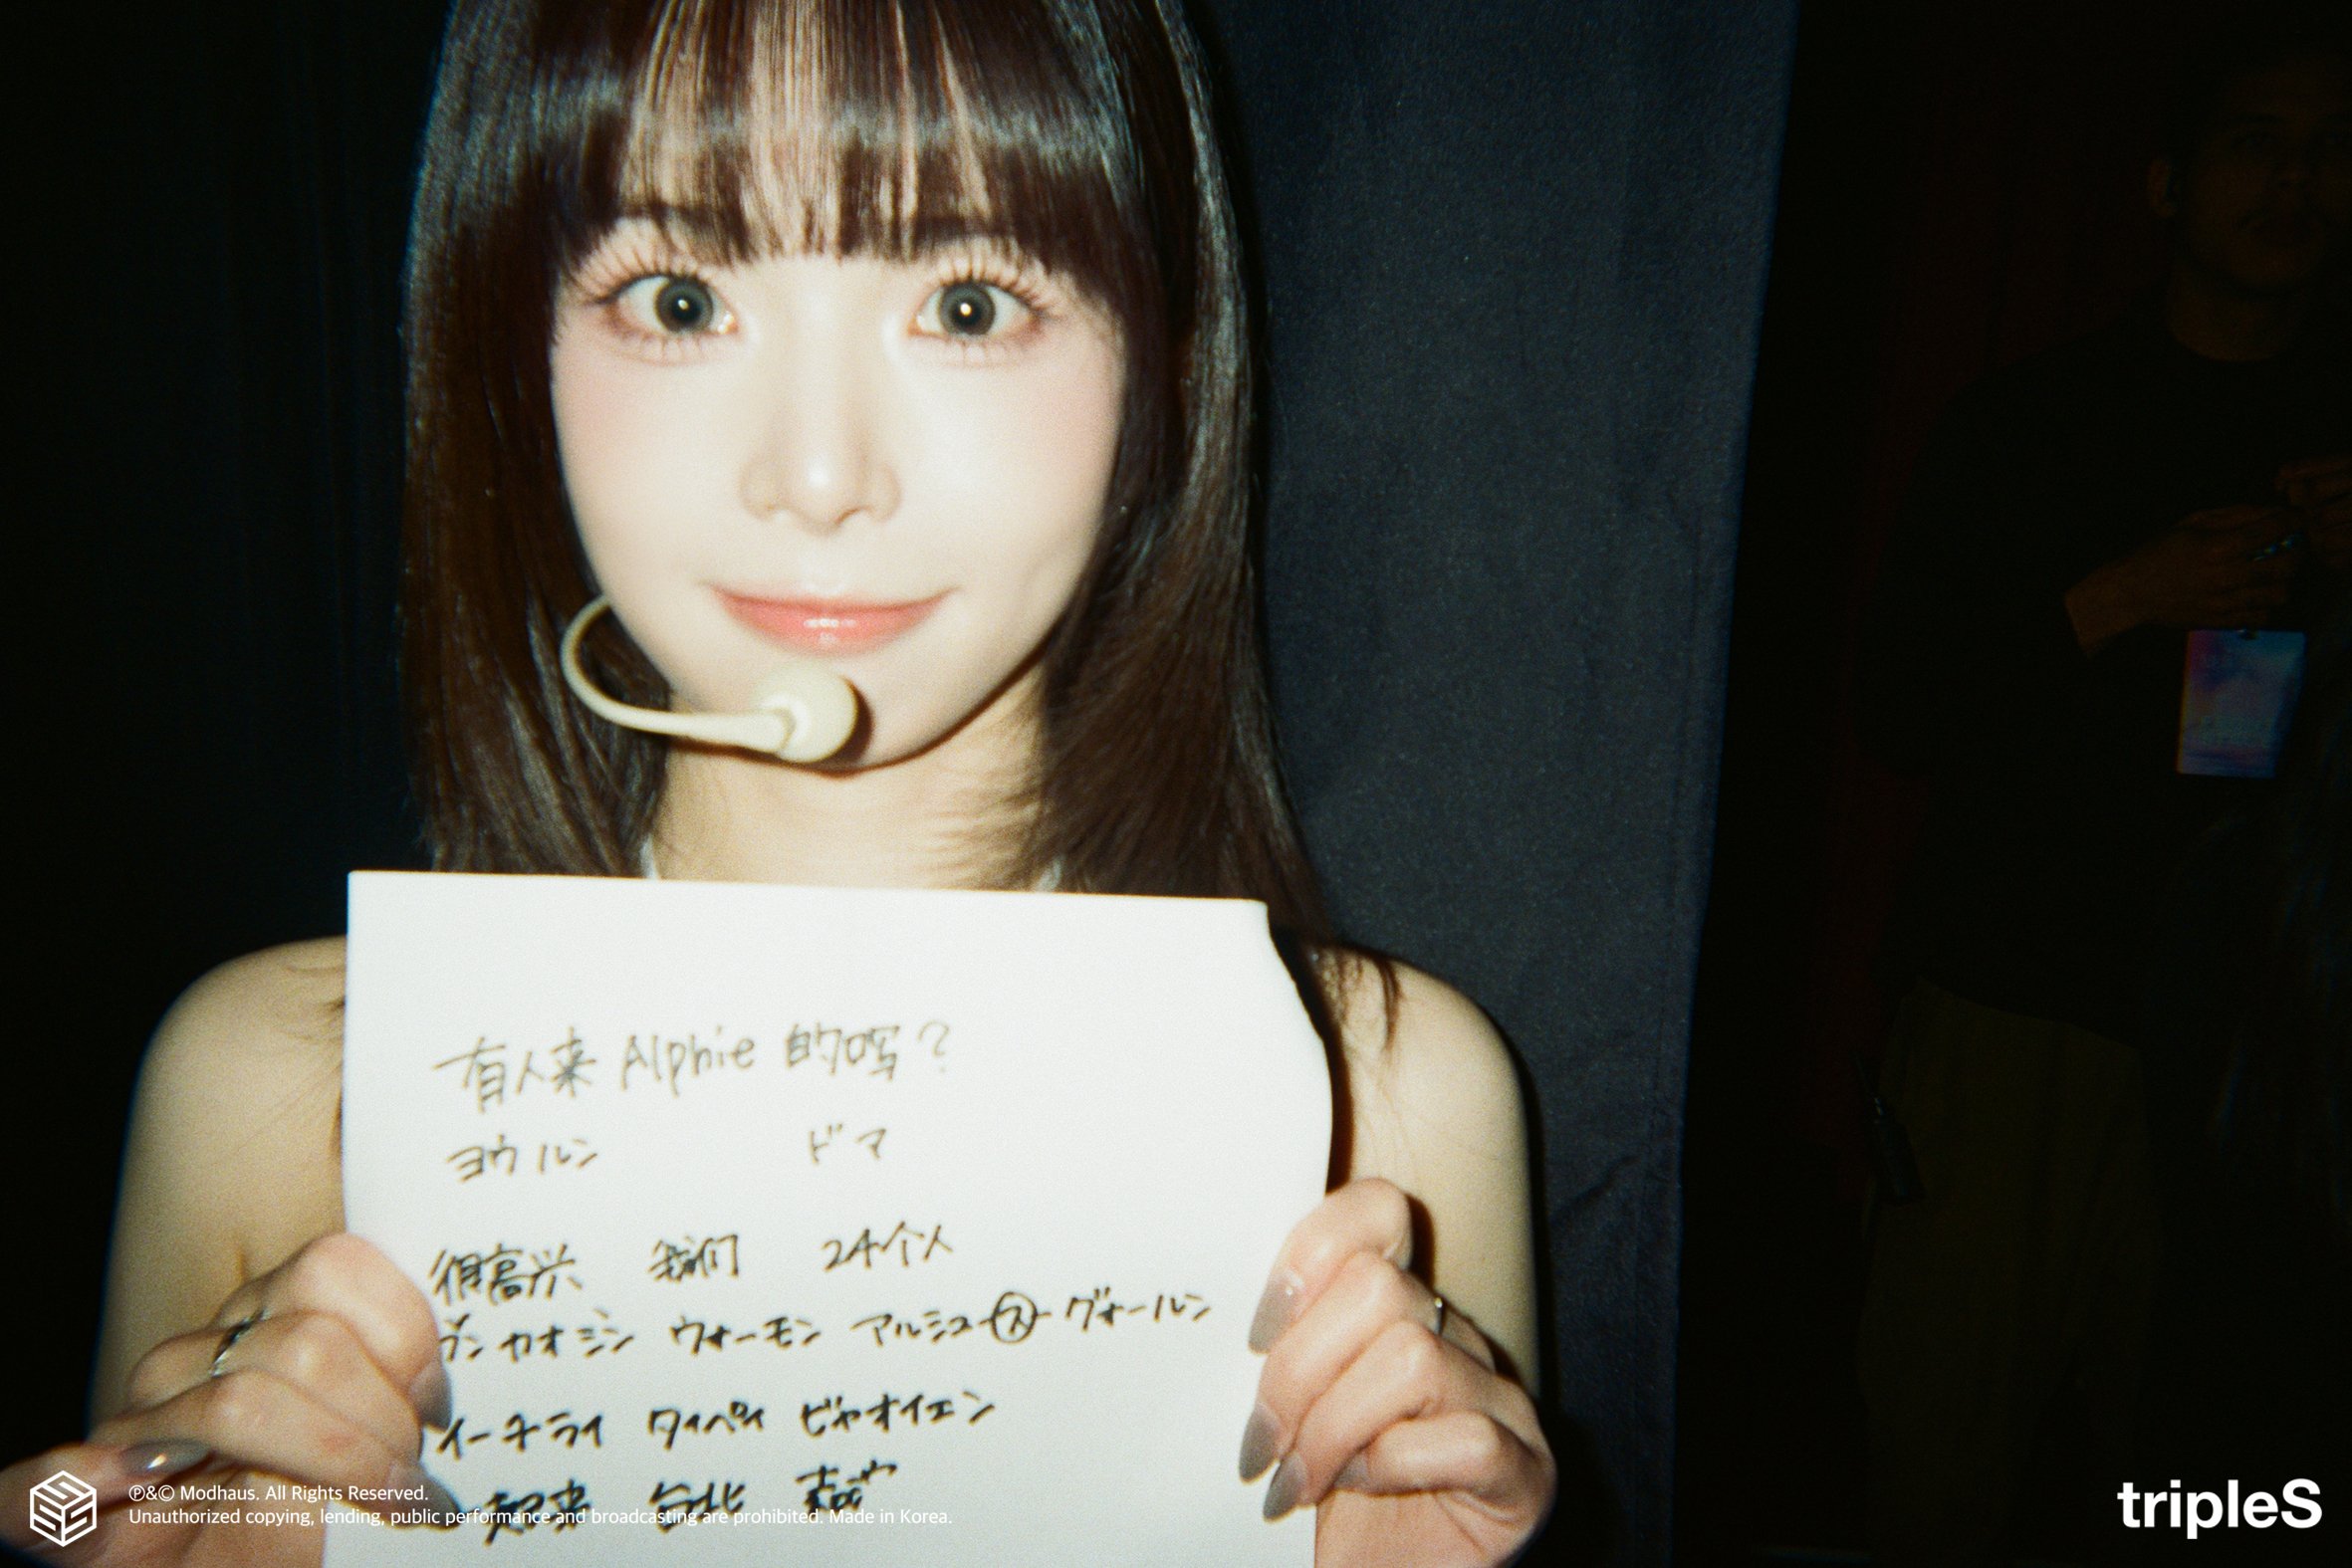 有人来 Alphie 的吗?
ヨウルン ドマ
很高兴 我们 24个人
カオシン ウォーモン アルシュース グォールン
イーチライ タイペイ ビャオイェン
起来 台北 表演
℗&© Modhaus. All Rights Reserved.
Unauthorized copying, lending, public performance and broadcasting are prohibited. Made in Korea.
tripleS